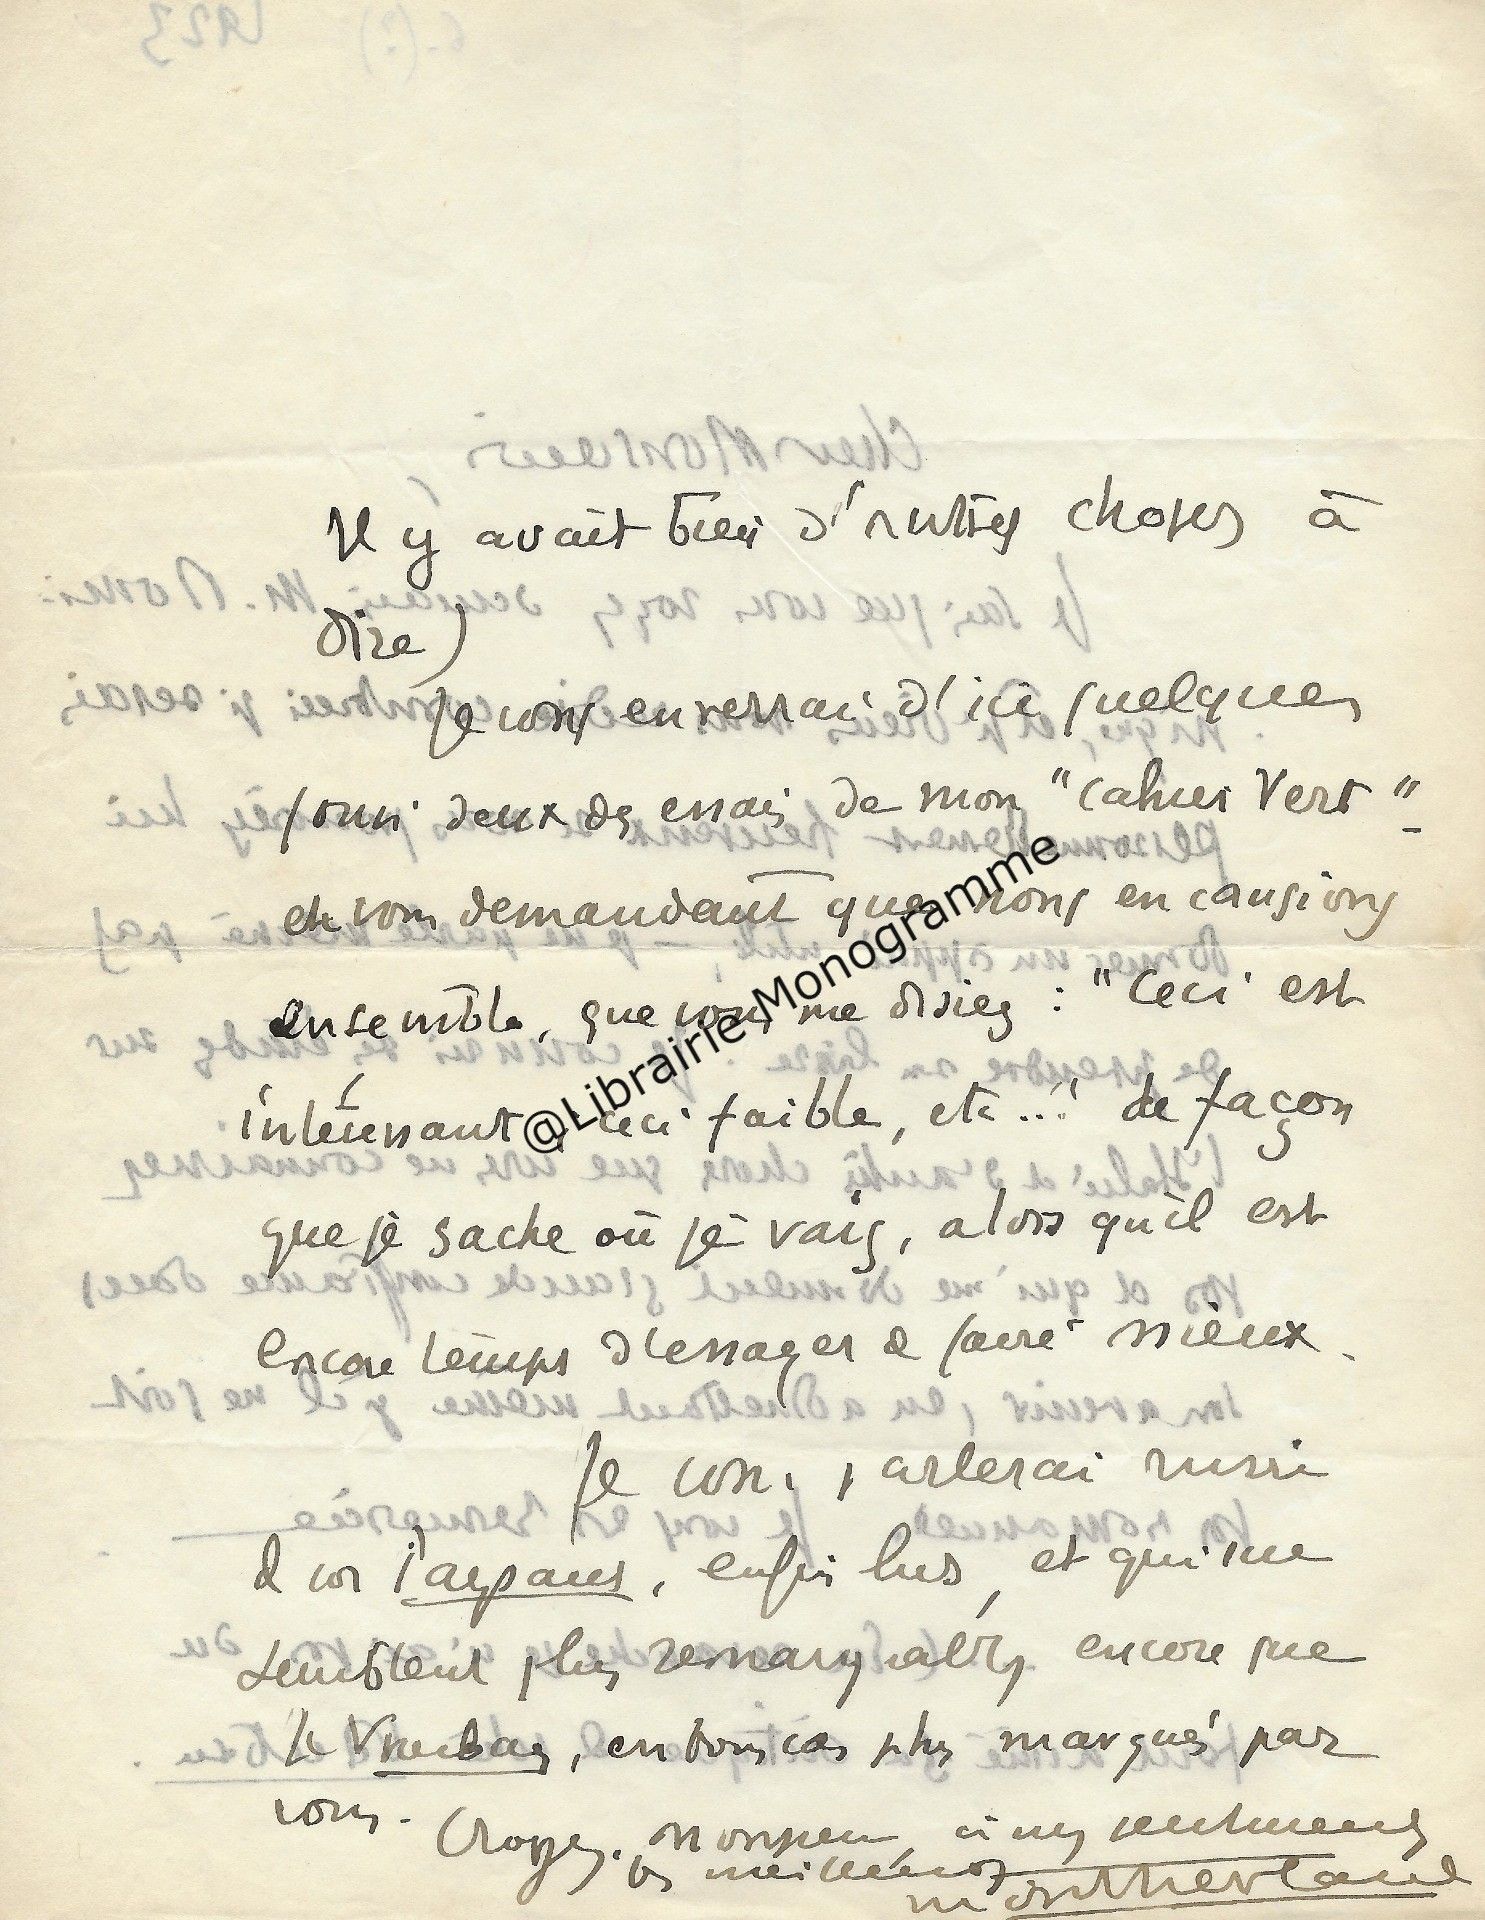 Il y avait bien d'autres choses à
dire)
Je vous enverrai d'ici quelques
jours deux des essais de mon "Cahier Vert"
en vous demandant que nous en causions
ensemble, que vous me disiez : "Ceci est
intéressant, ceci faible, etc..." de façon
que je sache où je vais, alors qu'il est
encore temps d'essayer de faire mieux.
Je vous parlerai aussi
de vos Paysans, enfin lus, et qui me
semblent plus remarquables encore que
le, en tous cas plus marqués par
vous.
Croyez, Monsieur, à mes sentiments
les meilleurs
Montherlant
@Librairie Monogramme